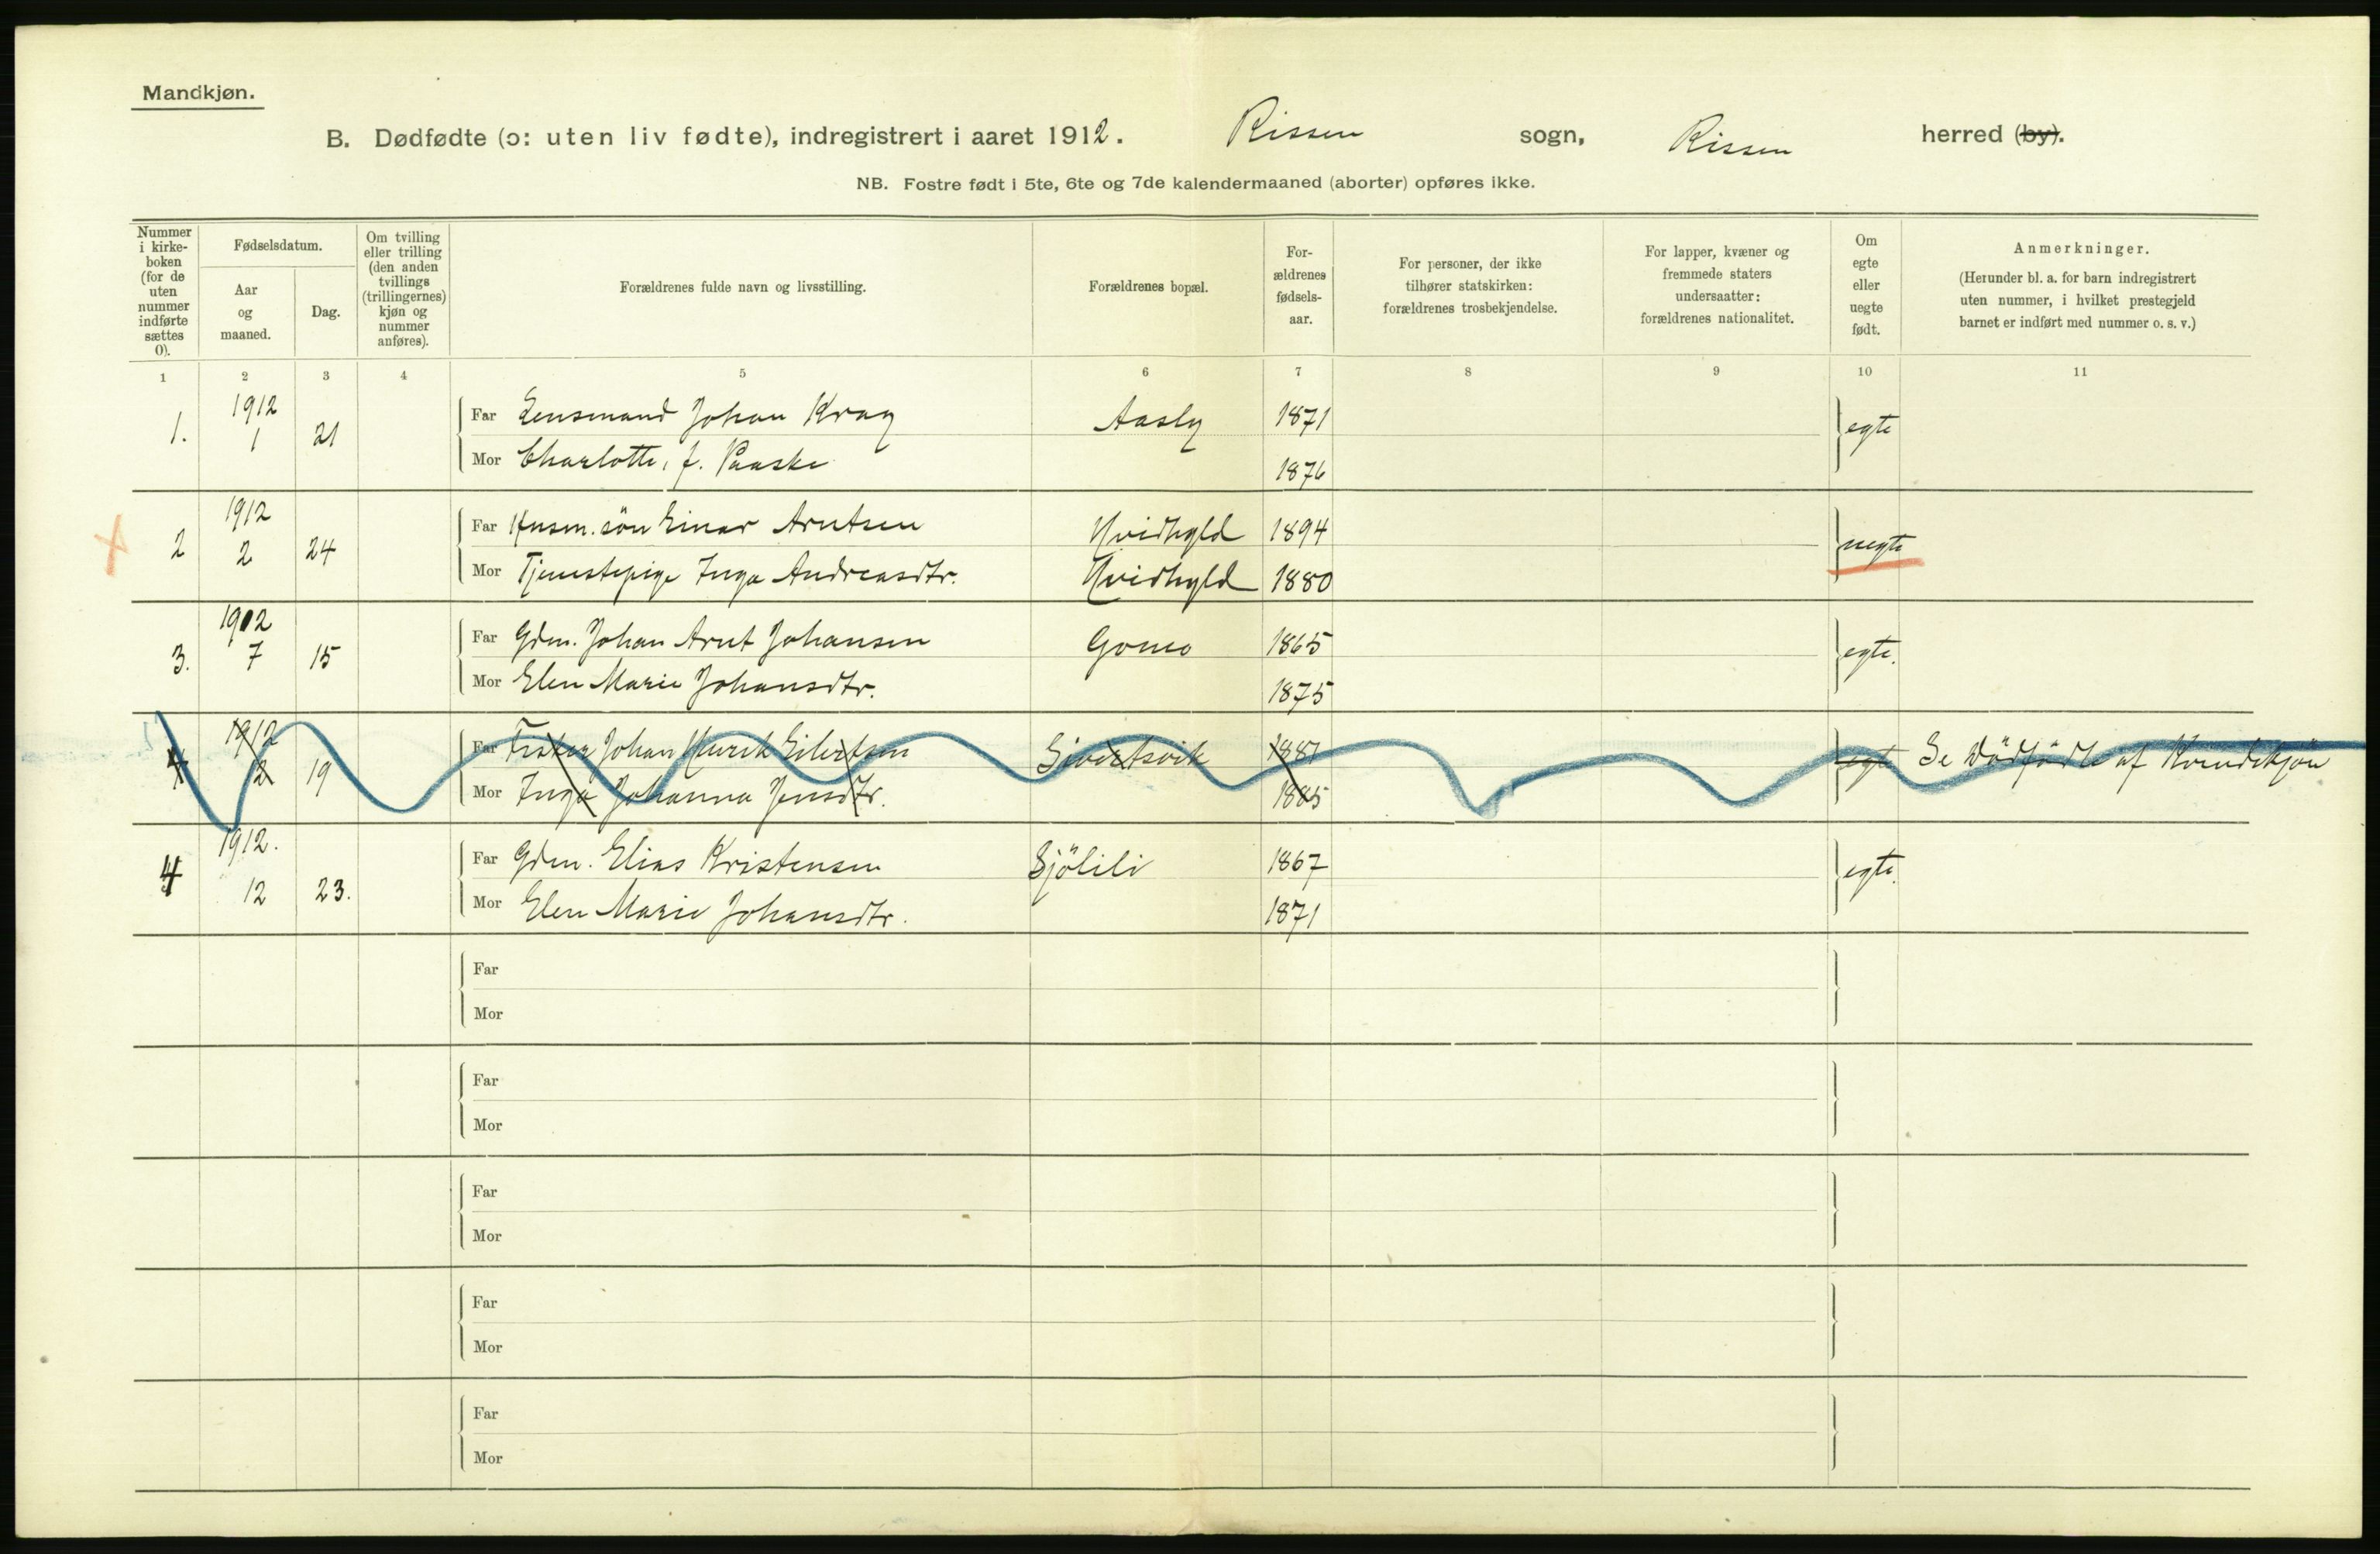 Mandkjøn.
B. Dødfødte (ɔ: uten liv fødte), indregistrert i aaret 1912. Rissen sogn, Rissen herred (by).
NB. Fostre født i 5te, 6te og 7de kalendermaaned (aborter) opføres ikke.
Nummer i kirke-boken (for de uten nummer indførte sættes 0).
Fødselsdatum.
Aar og maaned.
Dag.
Om tvilling eller trilling (den anden tvillings (trillingernes) kjøn og nummer anføres).
Forældrenes fulde navn og livsstilling.
Forældrenes bopæl.
For-ældrenes fødsels-aar.
For personer, der ikke tilhører statskirken: forældrenes trosbekjendelse.
For lapper, kvæner og fremmede staters undersaatter: forældrenes nationalitet.
Om egte eller uegte født.
Anmerkninger.
(Herunder bl. a. for barn indregistrert uten nummer, i hvilket prestegjeld barnet er indført med nummer o. s. v.)
1 2 3 4 5 6 7 8 9 10 11
1. 1912 1 21 Far Lensmand Johan Krag Aasly 1871 egte
Mor Charlotte, f. Paaske 1876
2 1912 2 24 Far Husm. sön Einar Arntsen Hvidhyld 1894 uegte
Mor Tjenestepige Inga Andreasdtr. Hvidhyld 1880
3. 1912 7 15 Far Gdm. Johan Arnt Johansen Gomo 1865 egte.
Mor Elen Marie Johansdtr. 1875
4 1912 2 19 Far Fisker Johan Henrik Eilertsen Sivertsvik 1881 egte Se Dödfödte af Kvindekjön
Mor Inga Johanna Jensdtr. 1885
4 1912. 12 23. Far Gdm. Elias Kristensen Sjölili 1867 egte.
Mor Elen Marie Johansdtr. 1871
Far
Mor
Far
Mor
Far
Mor
Far
Mor
Far
Mor